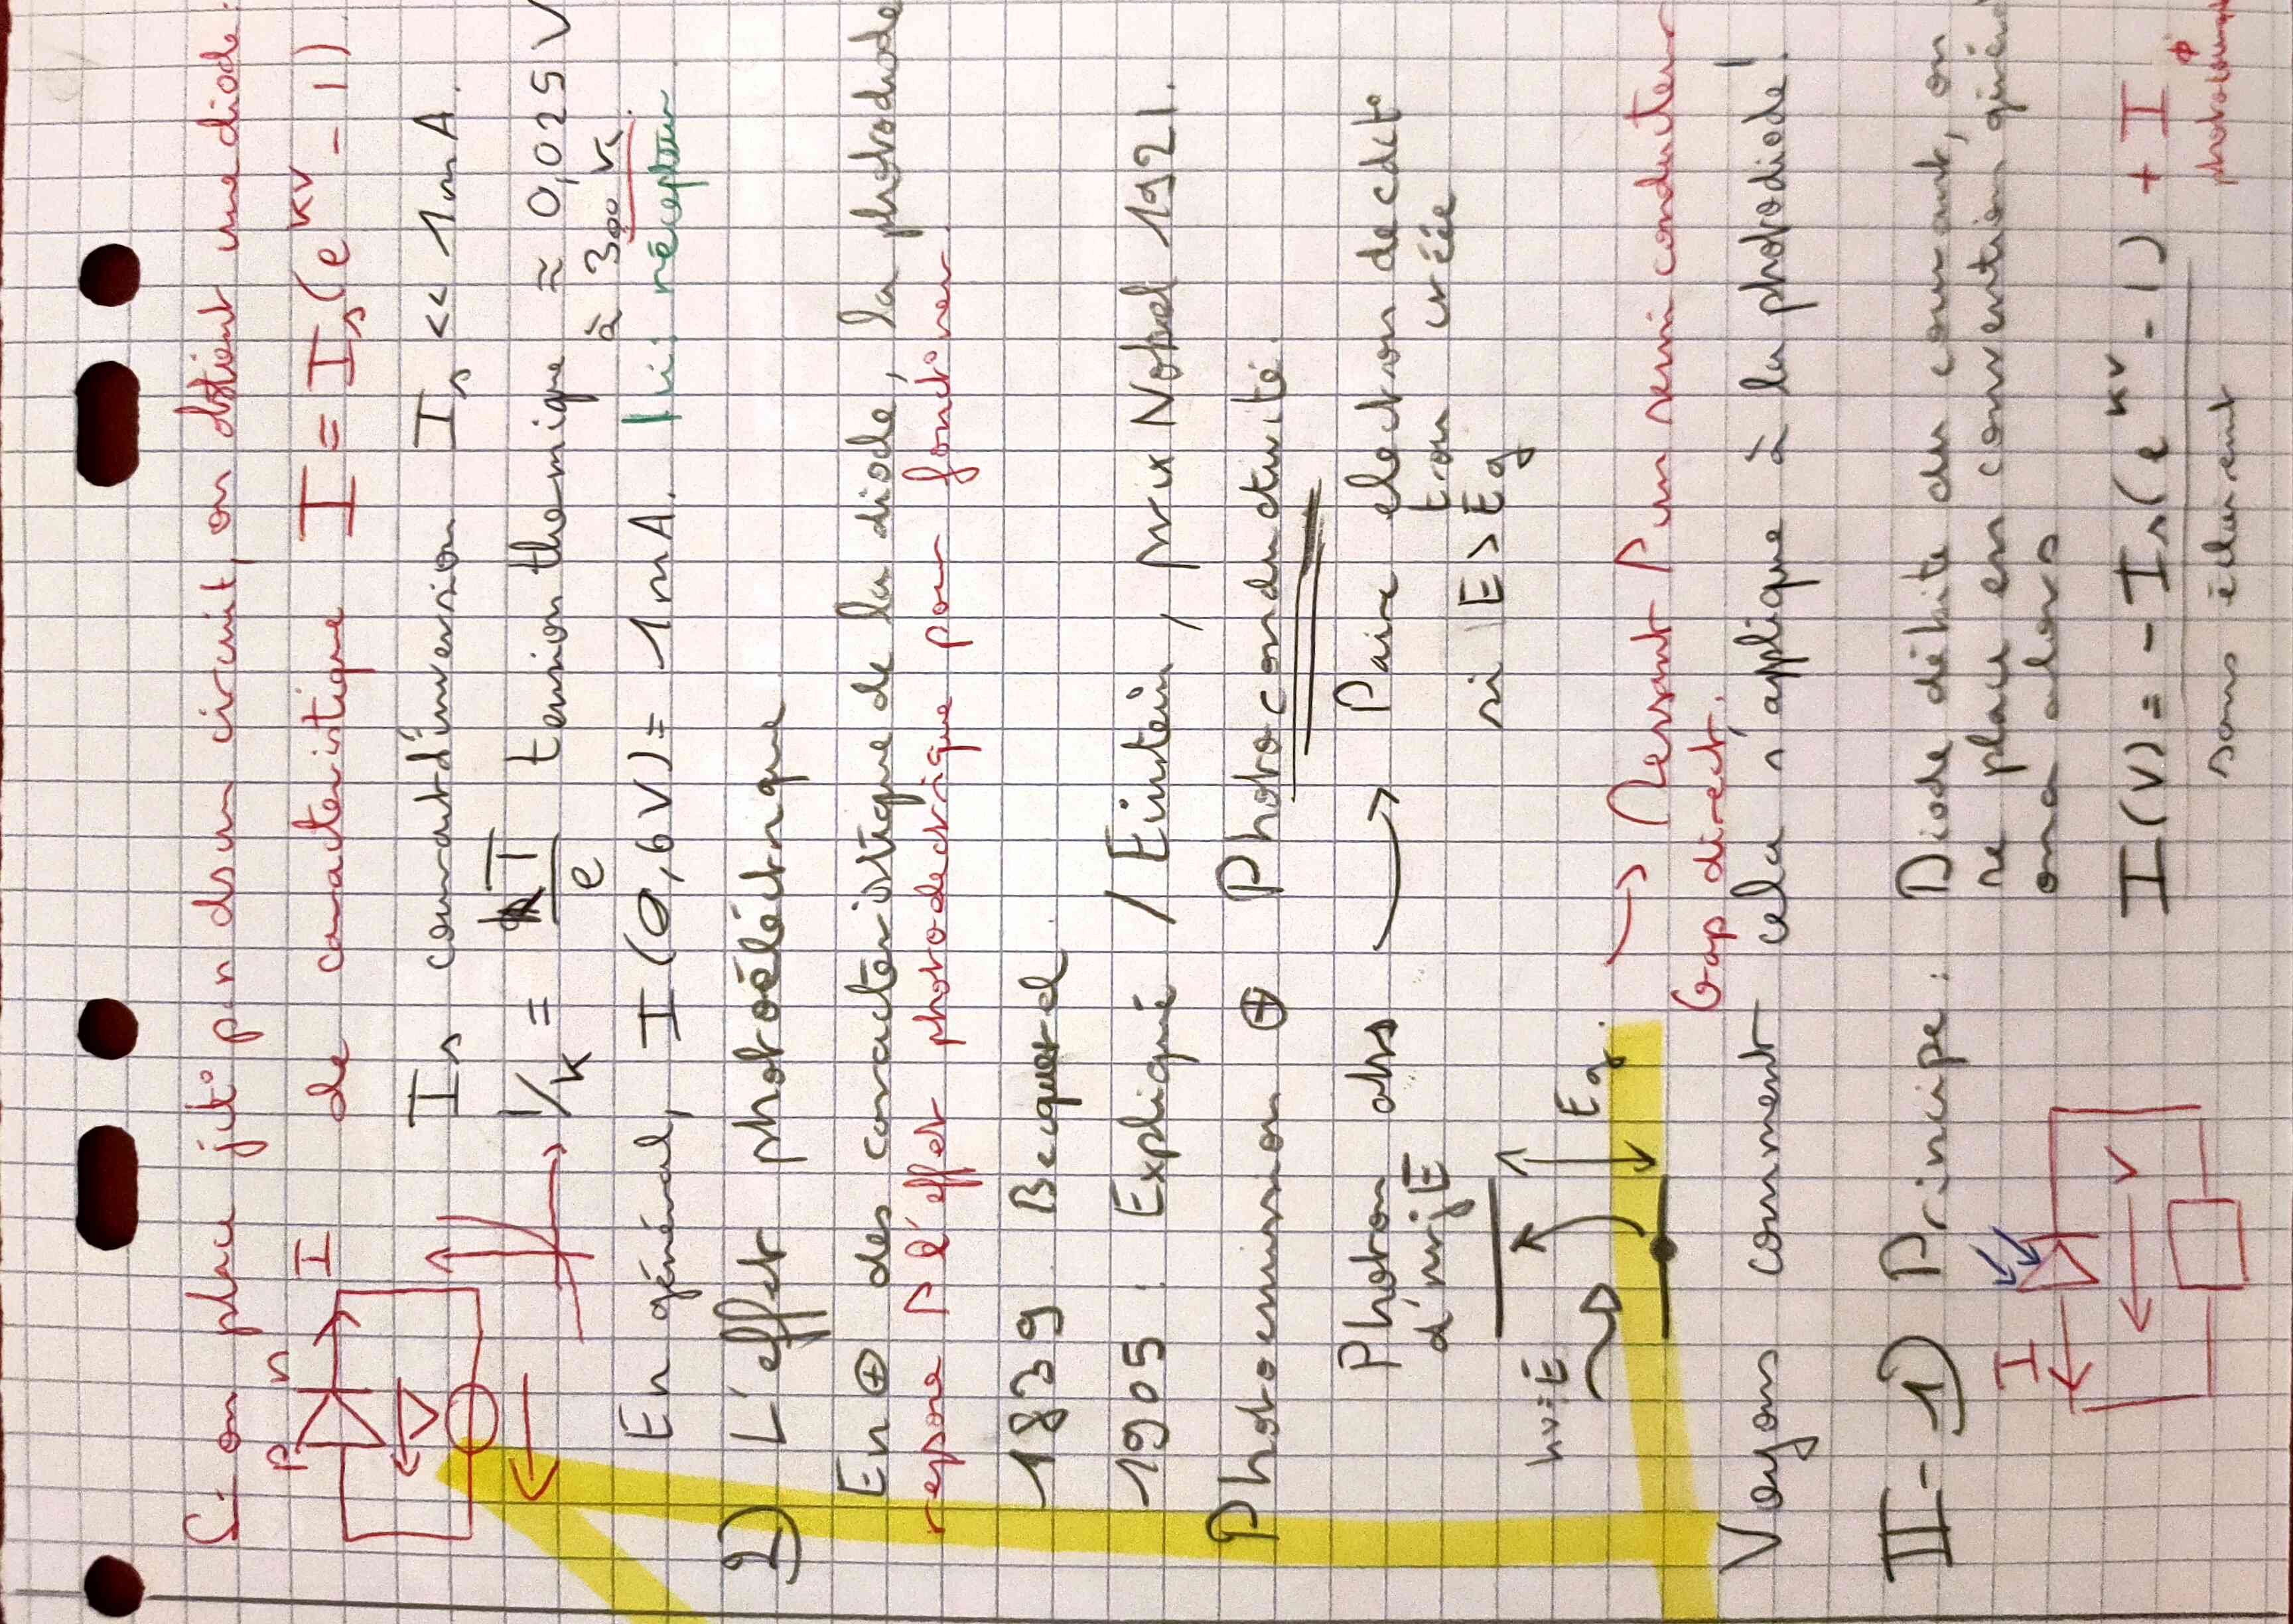 Si on place jct° pn dsun circuit, on obtient une diode.
P n I de caracteristique I = Is(e^KV - 1)
V
Is courant d'inversion Is << 1mA.
1/K = kT/e tension thermique ≈ 0,025V
à 300 K.
En général, I(0,6V) = 1mA. Ici récepteur
2) L'effet photoéléctrique
En ⊕ des caractéristique de la diode, la photodiode
repose P l'effet photoelectrique pour fonct°nner.
1839 Becquerel
1905 : Expliqué / Einstein, prix Nobel 1921.
Photoemission ⊕ Photoconductivité.
Photon abs → Paire electron de cdct°
d'nrjE trou créée
si E > Eg
hν=E Eg.
→ Nessant P un semi conducteur
Gap direct.
Voyons comment cela s'applique à la photodiode!
II-1) Principe : Diode débite du courant, on
se place en convention généra
on a alors
I V
I(V) = - Is(e^KV - 1) + Iϕ
sans éclairement photocourant